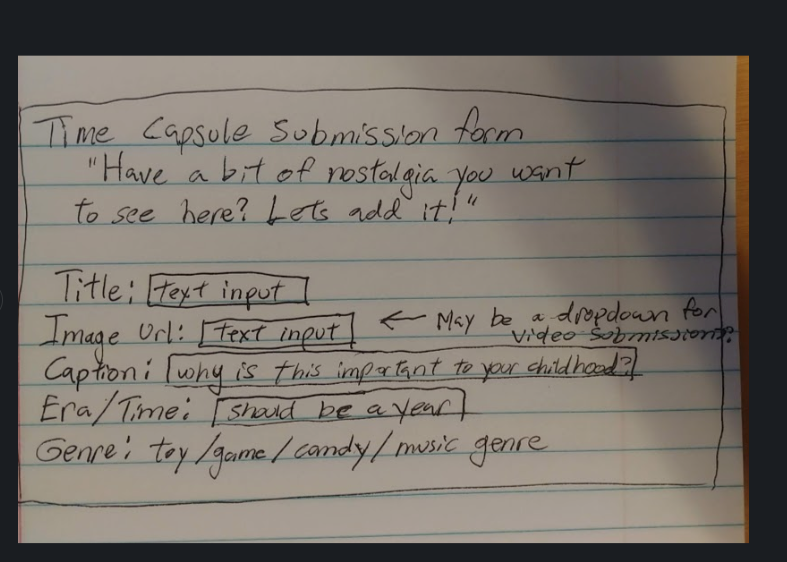 Time Capsule Submission form
"Have a bit of nostalgia you want
to see here? Lets add it!"
Title: text input
Image Url: text input ← May be a dropdown for
video submissions?
Caption: why is this important to your childhood?
Era/Time: should be a year
Genre: toy/game/candy/music genre